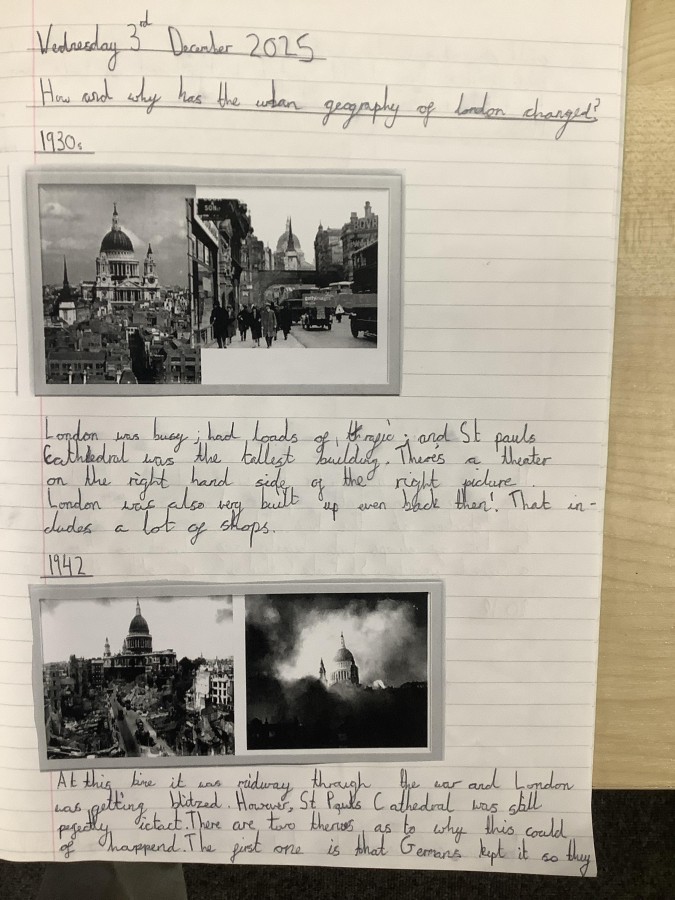 Wednesday 3rd December 2025
How and why has the urban geography of london changed?
1930s
London was busy; had loads of trafic; and St pauls
Cathedral was the tallest building. There's a theater
on the right hand side of the right picture.
London was also very built up even back then! That in-
cludes a lot of shops.
1942
At this time it was midway through the war and London
was getting blitzed. However, St Pauls Cathedral was still
pefectly intact. There are two as to why this could
of happend. The first one is that Germans kept it so they